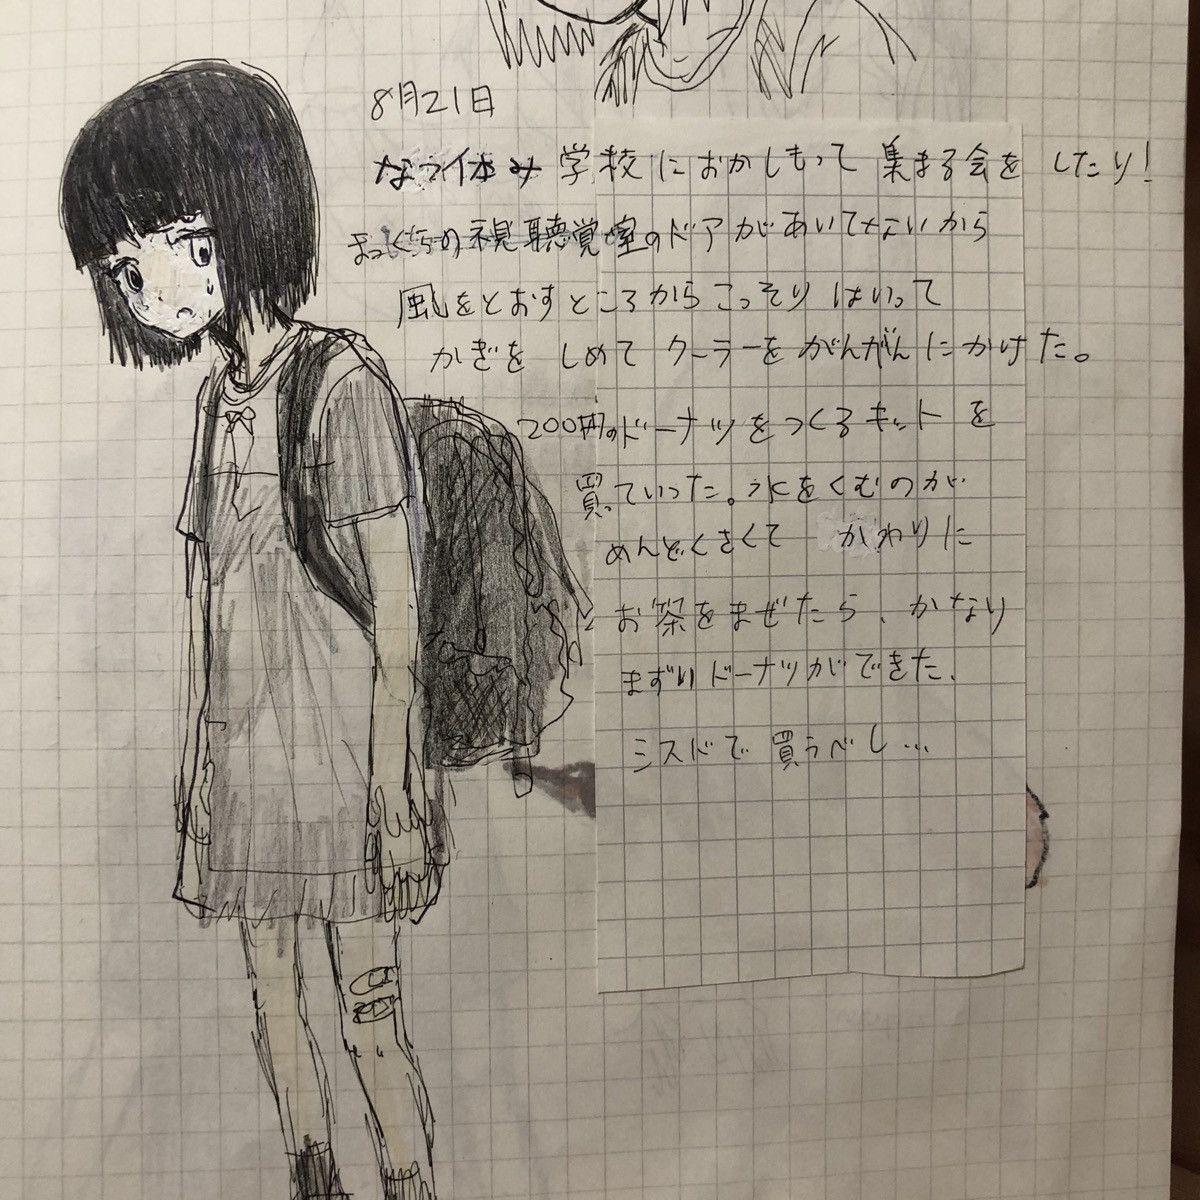 8月21日
なつ休み 学校におかしもって 集まる会をしたり!
まっくらの視聴覚室のドアがあいてないから
風をとおすところからこっそりはいって
かぎを しめて クーラーをがんがんにかけた。
200円のドーナツをつくるキットを
買っていった。水をくむのが
めんどくさくて かわりに
お茶をまぜたら、かなり
まずいドーナツができた、
ミスドで買うべし…